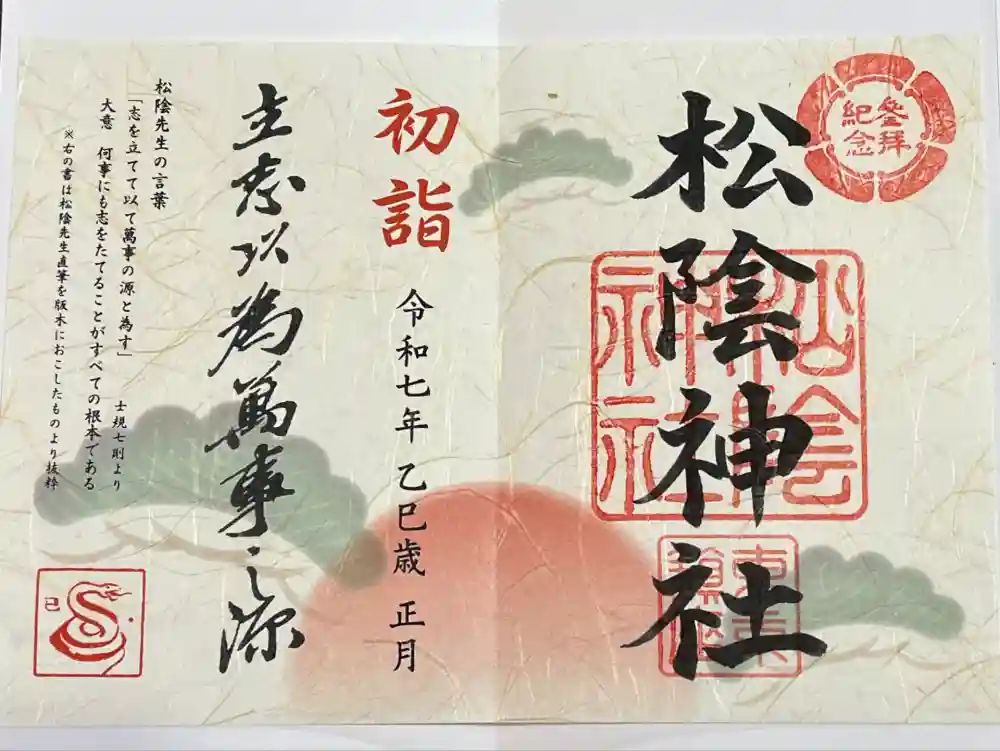 參拜
紀念
松陰神社
松陰
神社
初詣
令和七年 乙巳歳 正月
立志以為萬事之源
松陰先生の言葉
「志を立てて以て萬事の源と為す」
士規七則より
大意 何事にも志をたてることがすべての根本である
※右の書は松陰先生直筆を版木におこしたものより抜粋
巳